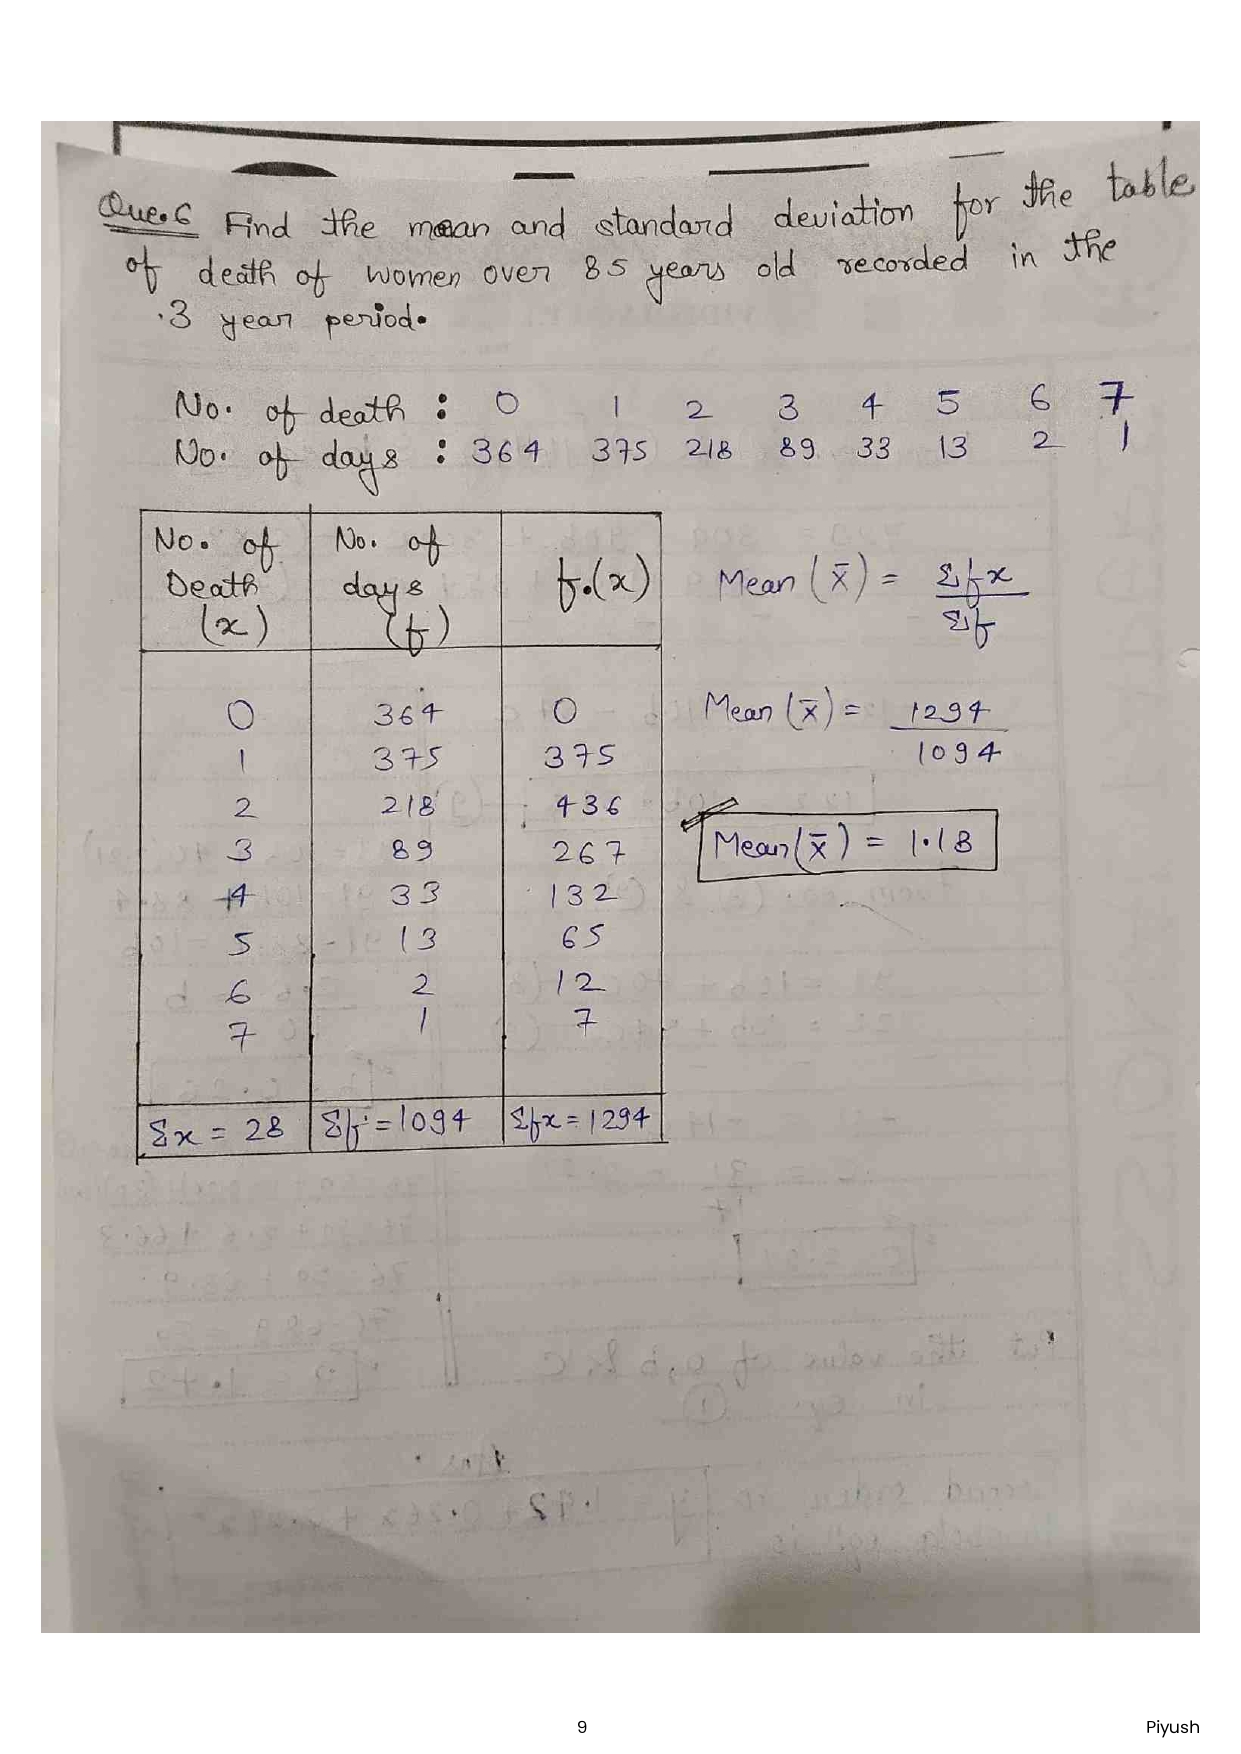 Que.6 Find the mean and standard deviation for the table
of death of women over 85 years old recorded in the
3 year period.
No. of death : 0 1 2 3 4 5 6 7
No. of days : 364 375 218 89 33 13 2 1
No. of Death (x) No. of days (f) f.(x)
0 364 0
1 375 375
2 218 436
3 89 267
4 33 132
5 13 65
6 2 12
7 1 7
Σx = 28 Σf = 1094 Σfx = 1294
Mean (x̄) = Σfx / Σf
Mean (x̄) = 1294 / 1094
Mean (x̄) = 1.18
9
Piyush